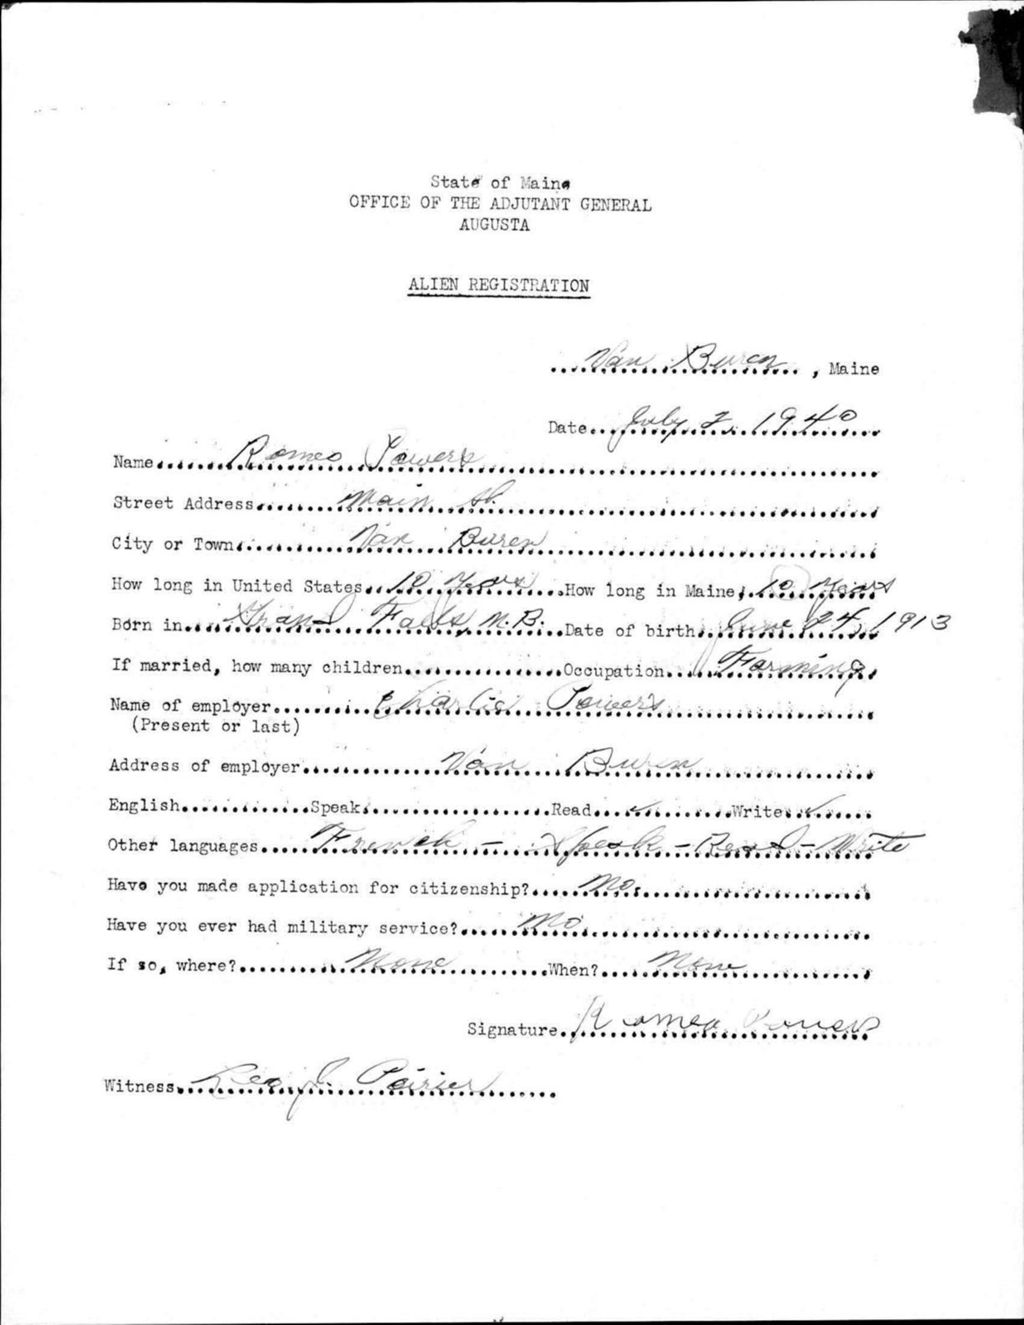 State of Maine
OFFICE OF THE ADJUTANT GENERAL
AUGUSTA
ALIEN REGISTRATION
Van Buren, Maine
Date July 2, 1940
Name Romeo Powers
Street Address Main St.
City or Town Van Buren
How long in United States 10 Years How long in Maine 10 Years
Born in Grand Falls, N.B. Date of birth June 24, 1913
If married, how many children Occupation Farming
Name of employer Charlie Powers
(Present or last)
Address of employer Van Buren
English Speak Read ✓ Write ✓
Other languages French - Speak - Read - Write
Have you made application for citizenship? No.
Have you ever had military service? No.
If so, where? None When? None
Signature Romeo Powers
Witness Leo J. Poirier